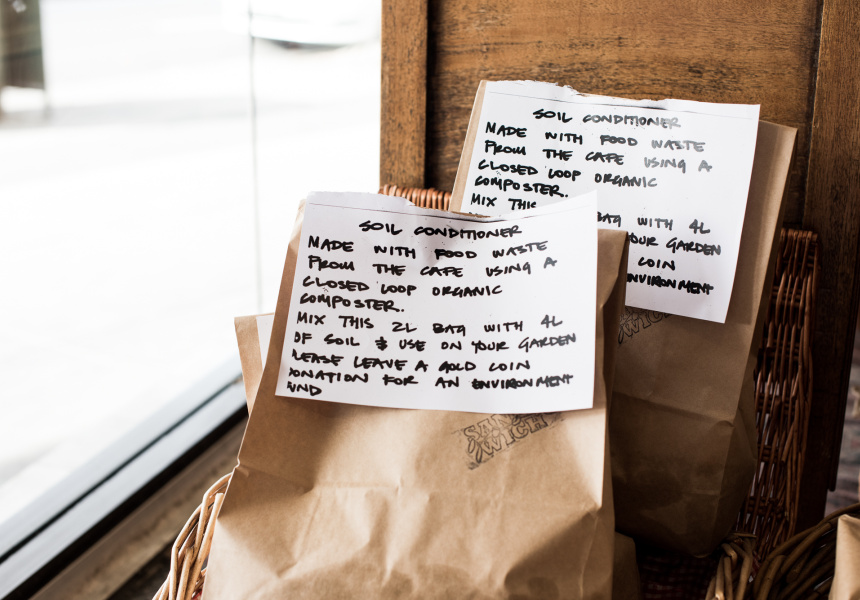 SOIL CONDITIONER
MADE WITH FOOD WASTE
FROM THE CAFE USING A
CLOSED LOOP ORGANIC
COMPOSTER.
MIX THIS 2L BAG WITH 4L
OF SOIL & USE ON YOUR GARDEN
LEASE LEAVE A GOLD COIN
ONATION FOR AN ENVIRONMENT
UND
SOIL CONDITIONER
MADE WITH FOOD WASTE
FROM THE CAFE USING A
CLOSED LOOP ORGANIC
COMPOSTER.
MIX THIS
BAG WITH 4L
YOUR GARDEN
COIN
ENVIRONMENT